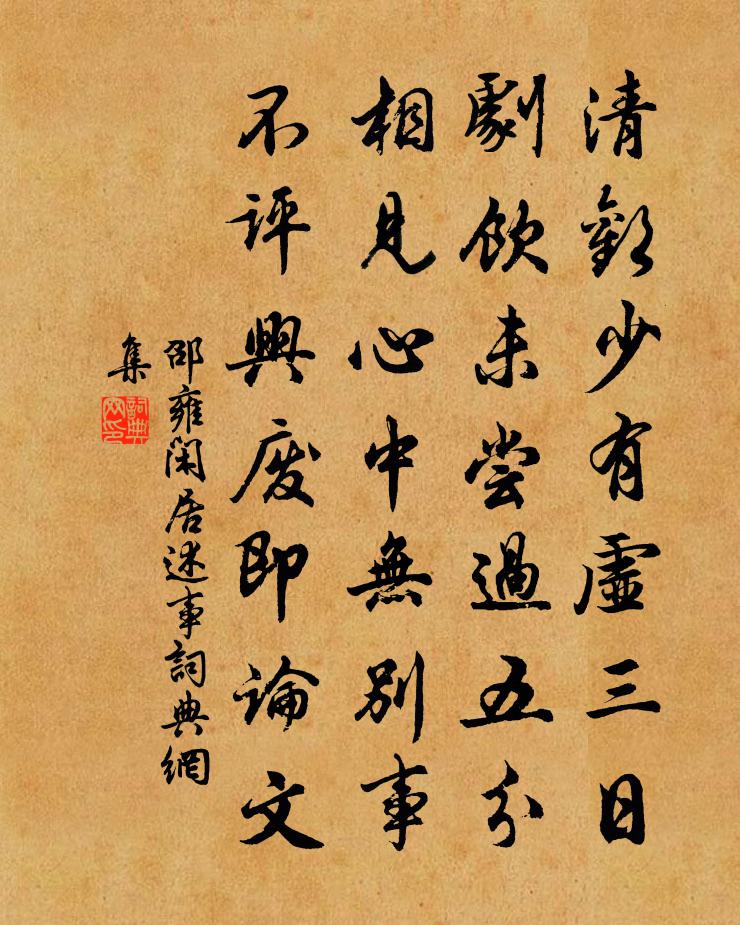 清歡少有虛三日
劇飲未嘗過五分
相見心中無別事
不評興廢即論文
邵雍閑居述事詞典網
集
詞典
網印